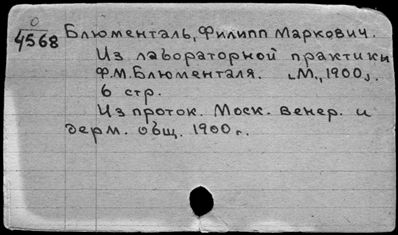 О
4568
Блюменталь, Филипп Маркович.
Из лабораторной практики
Ф.М. Блюменталя. [М., 1900].
6 стр.
Из проток. Моск. венер. и
дерм. общ. 1900 г.